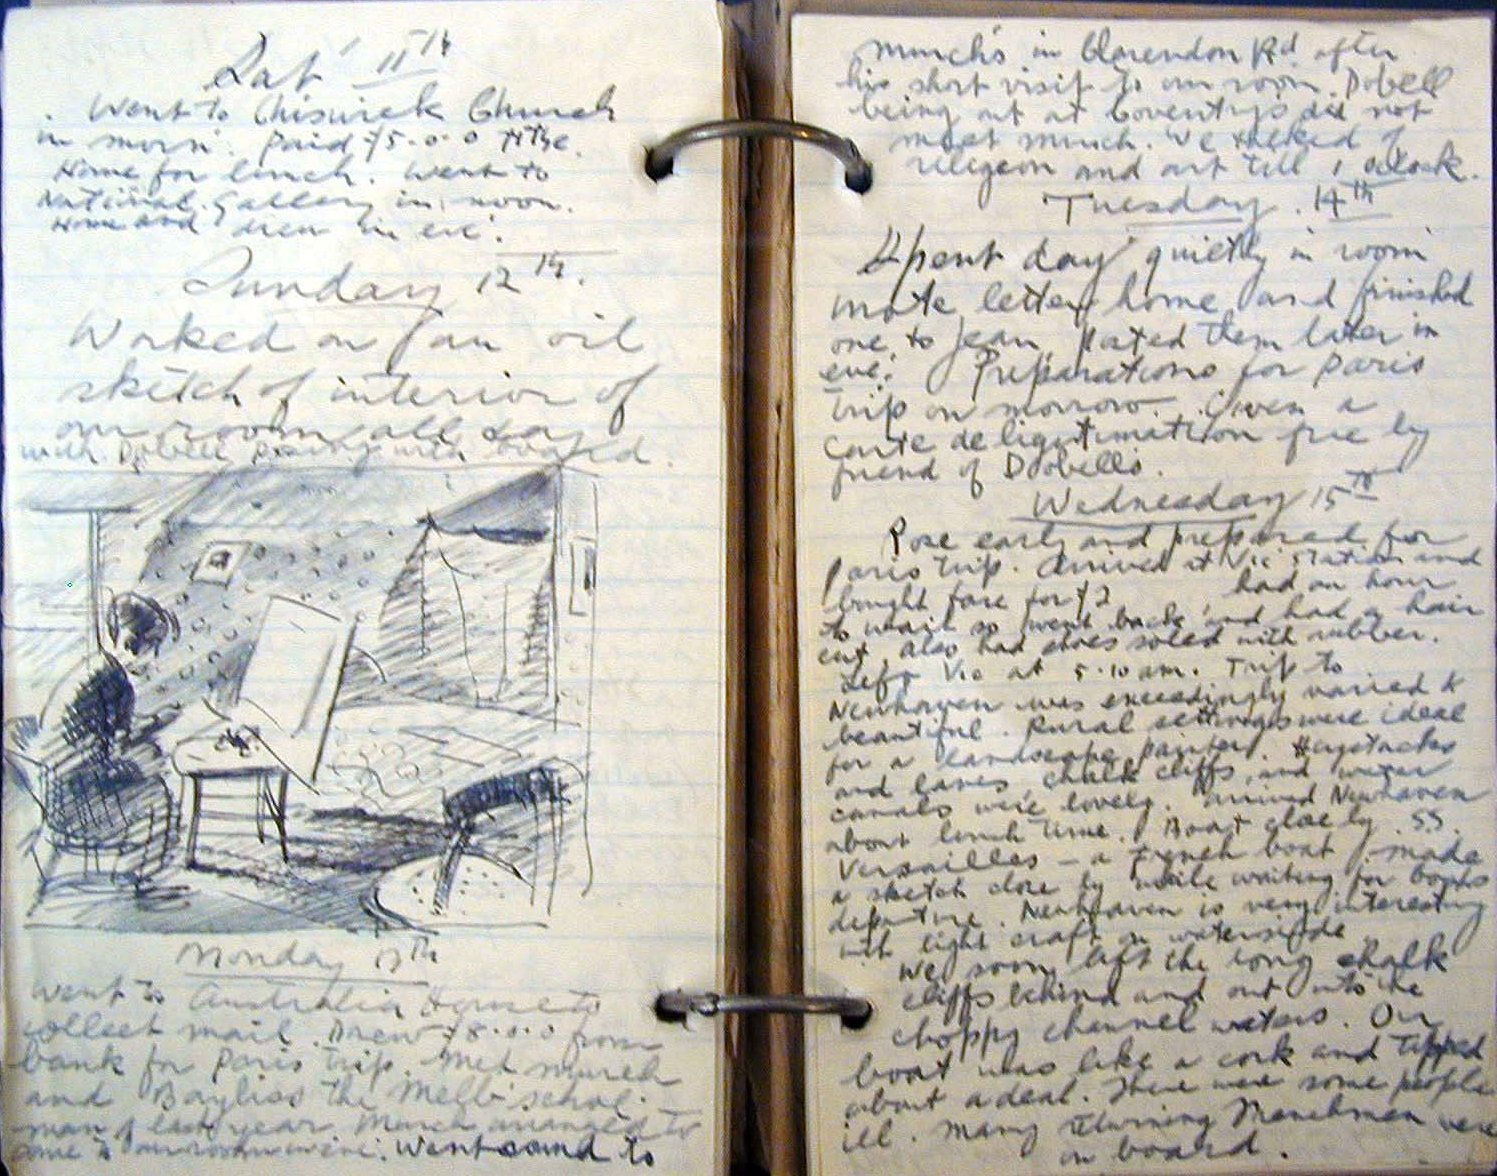 Sat 11th
Went to Chiswick Church
in morn. Paid £5.0.0 tithe.
Home for lunch. Went to
National Gallery in noon.
Home and drew in eve.
Sunday 12th.
Worked on an oil
sketch of interior of
our room all day
with Dobell posing with board.
Monday 13th
Went to Australia House to
collect mail. Drew £8.0.0 from
bank for Paris trip. Met Munch
and Bayliss the Melb schol.
man of last year. Munch arranged to
come to our room in eve. Went round to
Munch's in Clarendon Rd. after
his short visit to our room. Dobell
being out at Coventry's did not
meet Munch. We talked of
religeon and art till 1 oclock.
Tuesday 14th
Spent day quietly in room
wrote letters home and finished
one to Jean. Posted them later in
eve. Preparations for Paris
trip on morrow. Given a
carte de legitimation free by
friend of Dobell's.
Wednesday 15th
Rose early and prepared for
Paris trip. Arrived at Vic station and
bought fare for £2 had an hour
to wait so went back and had a hair
cut, also had shoes soled with rubber.
Left Vic at 5.10 am. Trip to
Newhaven was exceedingly varied &
beautiful. Rural settings were ideal
for a landscape painter. Haystacks
and lanes, chalk cliffs, and water
canals were lovely. Arrived Newhaven
about lunch time. Boat close by. SS.
Versailles - a French boat. I made
a sketch close by while waiting for boats
departure. Newhaven is very interesting
with light craft on waterside.
We soon left the long chalk
cliffs behind and out into the
choppy channel waters. Our
boat was like a cork and tipped
about a deal. There were some people
ill. Many returning Frenchmen were
on board.